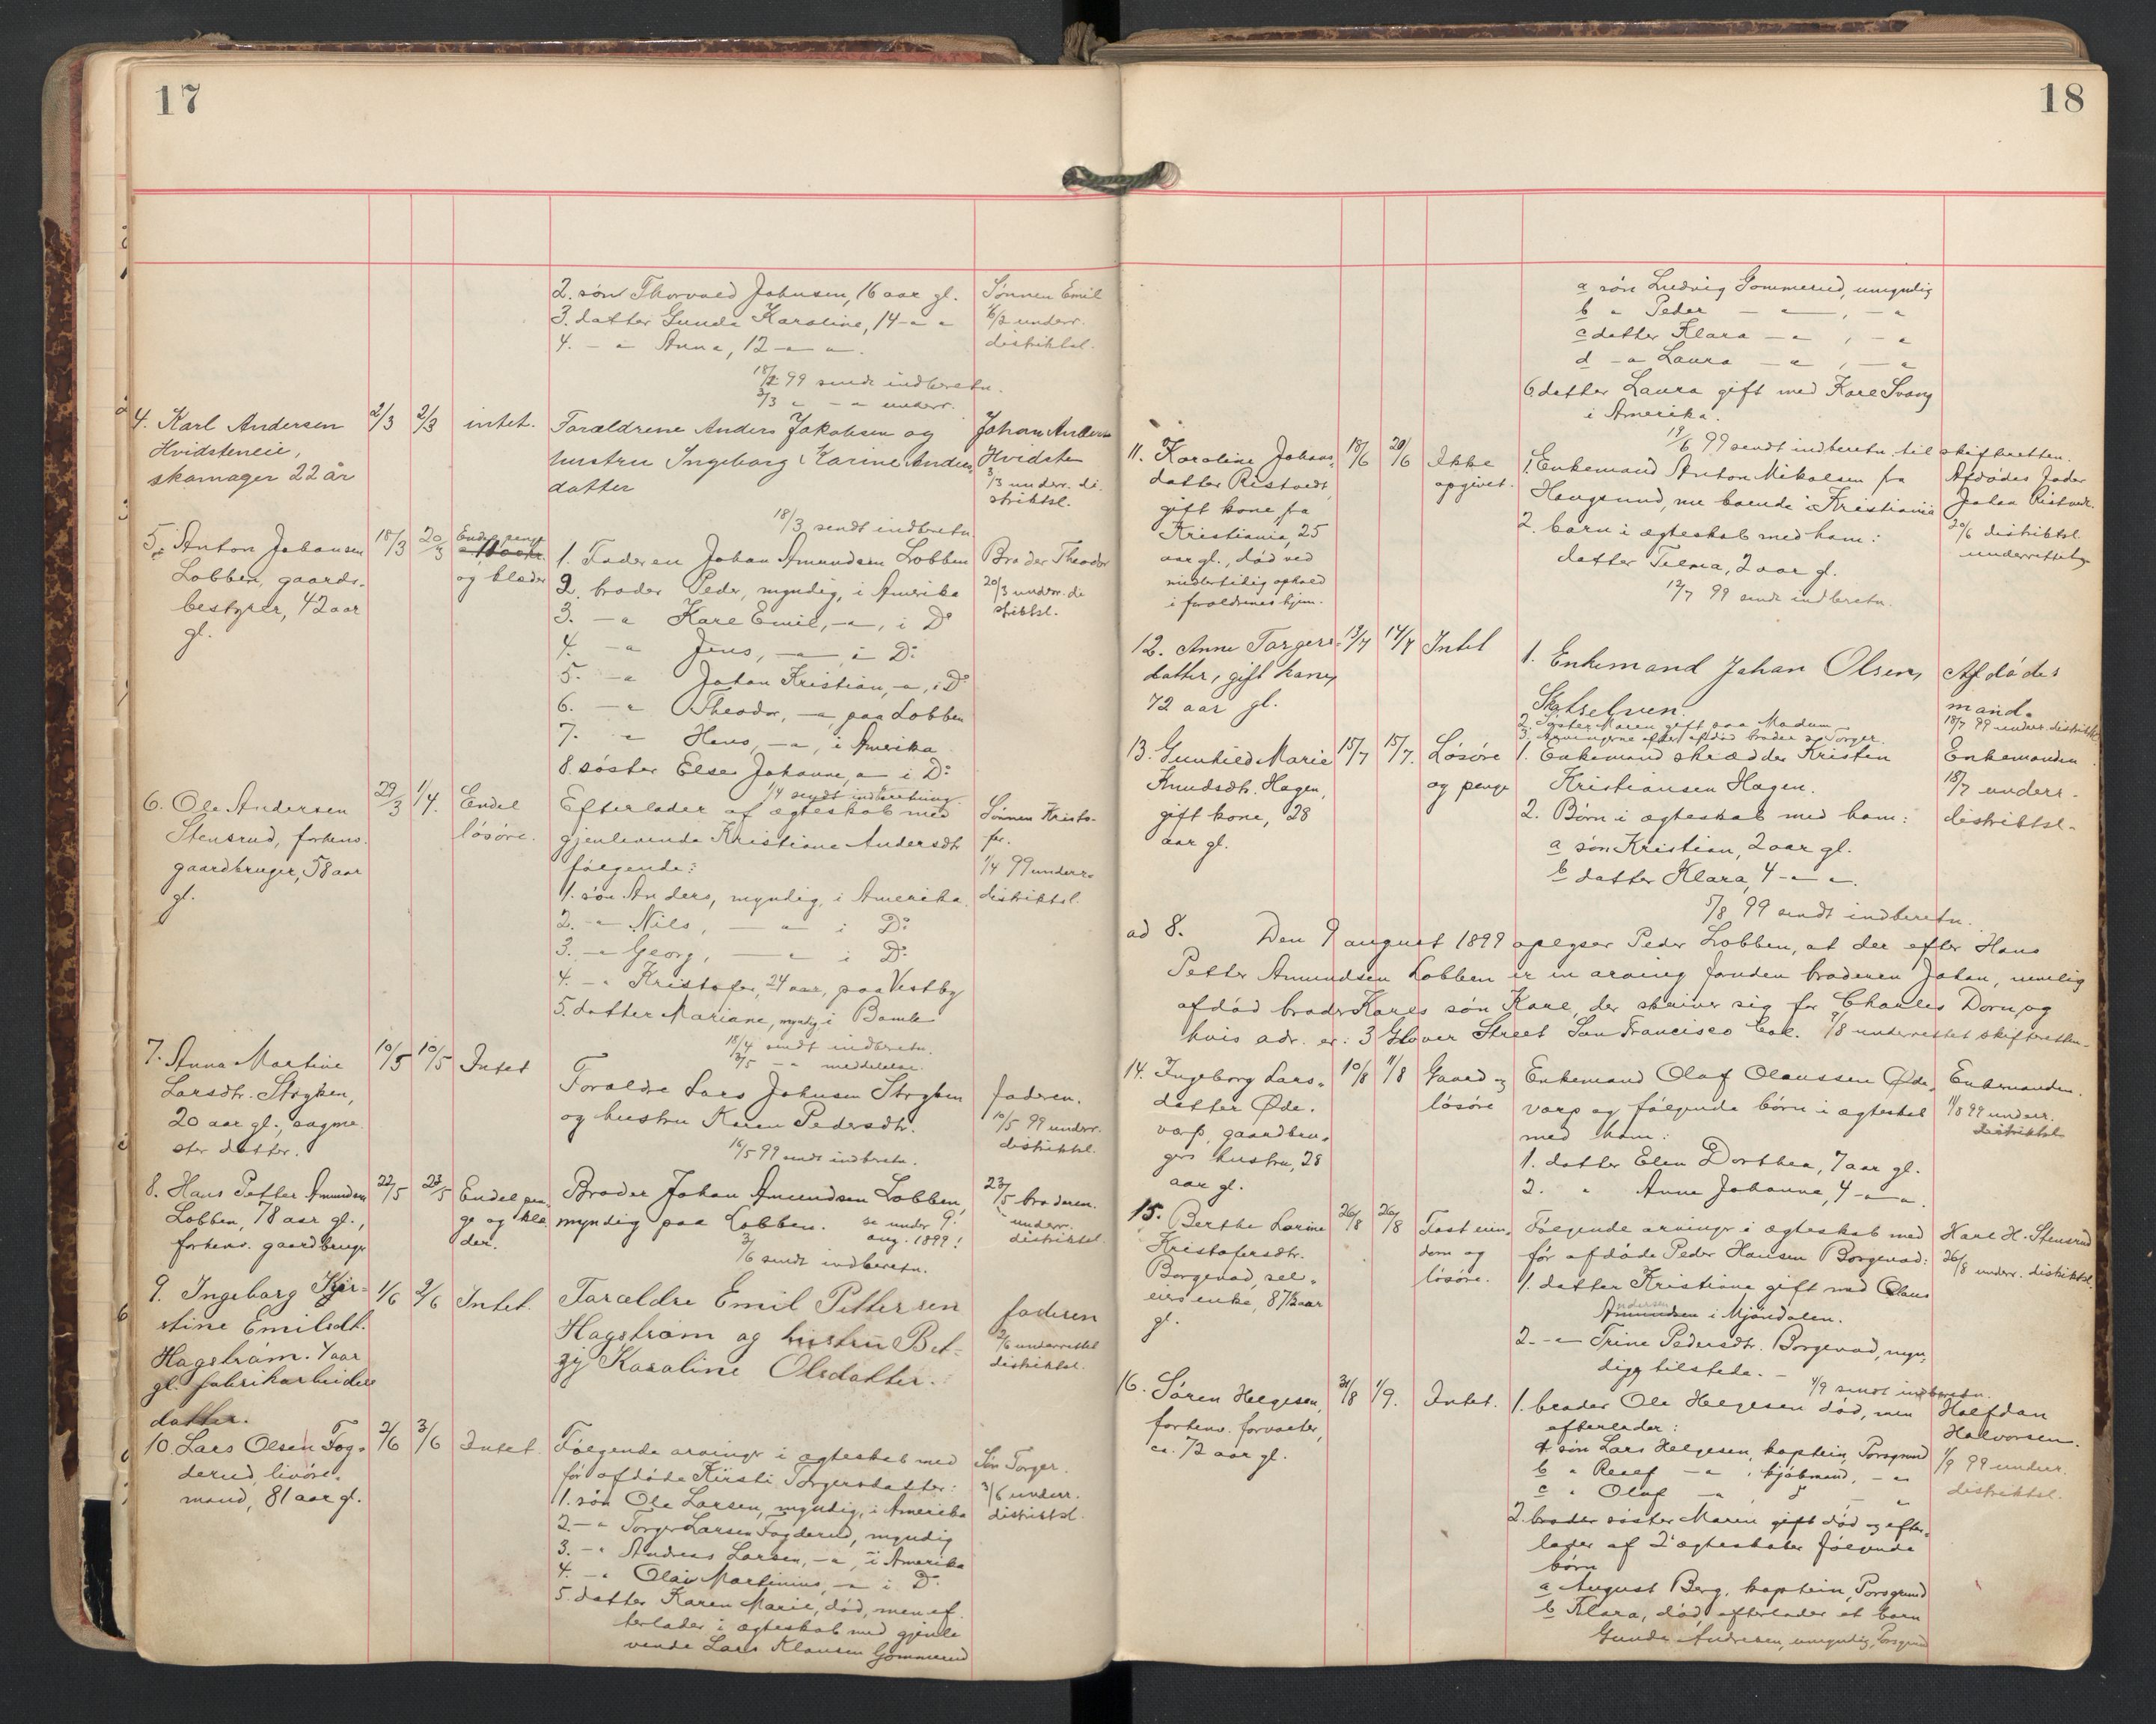 17
2. søn Thorvald Johnsen, 16 aar gl.
3. datter Gunda Karoline, 14 - " "
4. - " Anna, 12 - " ".
18/2 99 sendt indberetn.
3/3 " - " underr.
Sønnen Emil
6/2 underr.
distriktsl.
4. Karl Andersen
Hvidsteneie,
skomager 22 år
2/3
2/3
intet.
Forældrene Anders Jakobsen og
hustru Ingeborg Karine Anders
datter
18/3 sendt indberetn.
Johan Anders
Hvidsten
3/3 underr. di-
striktsl.
5. Anton Johansen
Lobben, gaards-
bestyrer, 42 aar
gl.
18/3
20/3
Endel penge
og klæder
1. Faderen Johan Amundsen Lobben
2. broder Peder, myndig, i Amerika
3. - " Karl Emil, - ", i Do
4. - " Jens, - " i Do
5. - " Johan Kristian, - ", i Do
6. - " Theodor, - ", paa Lobben
7. " Hans, - ", i Amerika
8. søster Else Johanne, " i Do
1/4 sendt indberetning.
Broder Theodor
20/3 underr. di
striktsl.
6. Ole Andersen
Stensrud, forhenv.
gaardbruger, 58 aar
gl.
29/3
1/4.
Endel
løsøre.
Efterlader af ægteskab med
gjenlevende Kristiane Andersdt.
følgende:
1. søn Anders, myndig, i Amerika.
2. - " Nils, - " i Do
3. - " Georg, - " i Do
4. - " Kristofer, 24 aar, paa Vestby
5. datter Mariane, myndig i Bamle
18/4 sendt indberetn.
3/5 - " meddelelse.
Sønnen Kristo-
fer.
1/4 99 underr.
distriktsl.
7. Anna Martine
Larsdtr. Stryken,
20 aar gl., sagme-
ster datter.
10/5
10/5
Intet
Forældre Lars Johnsen Stryken
og hustru Karen Pedersdtr.
16/5 99 sendt indberetn.
Faderen.
10/5 99 underr.
distriktsl.
8. Hans Petter Amundsen
Lobben, 78 aar gl.,
forhenv. gaardbruger
22/5
23/5
Endel pen-
ge og klæ-
der.
Broder Johan Amundsen Lobben,
myndig paa Lobben. se under 9.
aug. 1899!
3/6 sendt indberetn.
23/5 broderen.
underr.
distriktsl.
9. Ingeborg Kjer-
stine Emilsdt.
Hagstrøm. 4 aar
gl. fabrikarbeider
datter.
1/6
2/6
Intet.
Forældre Emil Pettersen
Hagstrøm og hustru Bet-
zy Karoline Olsdatter.
faderen
2/6 underrettet
distriktsl.
10. Lars Olsen Fog-
derud, livøre-
mand, 81 aar gl.
2/6
3/6
Intet.
Følgende arvinger i ægteskab med
før afdøde Kirsti Torgersdatter:
1. søn Ole Larsen, myndig, i Amerika
2. - " Torger Larsen Fogderud, myndig
3. - " Andreas Larsen, - ", i Amerika
4. - " Olai Martinius, - " i Do
5. datter Karen Marie, død, men ef-
terlader i ægteskab med gjenle-
vende Lars Klausen Gommerud
Søn Torger.
3/6 underr.
distriktsl.
18
a søn Ludvig Gommerud, umyndig
b " Peder - " , - "
c datter Klara - " , - "
d - " Laura - " , - "
6. datter Laura gift med Karl Svang
i Amerika.
19/6 99 sendt indberetn. til skifteretten.
11. Karoline Johans-
datter Ristvedt,
gift kone, fra
Kristiania, 25
aar gl., død ved
midlertidig ophold
i forældrenes hjem.
18/6
20/6
Ikke
opgivet.
1. Enkemand Anton Mikalsen fra
Haugsund, nu boende i Kristiania
2. barn i ægteskab med ham:
datter Telma, 2 aar gl.
12/7 99 sendt indberetn.
Afdødes fader
Johan Ristvedt.
20/6 distriktsl.
underrettet
12. Anne Torgers-
datter, gift kone,
72 aar gl.
13/7
14/7
Intet
1. Enkemand Johan Olsen,
Skotselven.
2. Søster Maren gift paa Modum
3. Arvingerne efter afdød broder Torger.
Afdødes
mand.
18/7 99 underr. distriktsl.
13. Gunhild Marie
Knudsdtr. Hagen,
gift kone, 28
aar gl.
15/7
15/7.
Løsøre
og penge
1. Enkemand skrædder Kristen
Kristiansen Hagen.
2. Børn i ægteskab med ham:
a søn Kristian, 2 aar gl.
b datter Klara, 4 - " ".
5/8 99 sendt indberetn.
Enkemanden
18/7 underr.
distriktsl.
ad 8. Den 9 august 1899 oplyser Peder Lobben, at der efter Hans
Petter Amundsen Lobben er en arving foruden broderen Johan, nemlig
afdød broder Karls søn Karl, der skriver sig for Charles Dorn, og
hvis adr. er: 3 Glover Street San Francisco Cal. 9/8 underrettet skifteretten.
14. Ingeborg Lars-
datter Øde-
varp, gaardbru-
gers hustru, 28
aar gl.
10/8
11/8
Gaard og
løsøre
Enkemand Olaf Olaussen Øde-
varp og følgende børn i ægteskab
med ham:
1. datter Elen Dorthea, 7 aar gl.
2. " Anne Johanne, 4 - " "
Enkemanden.
11/8 99 underr.
distriktsl.
15. Berthe Lorine
Kristofersdtr.
Borgerud, sel-
eiers enke, 87 1/2 aar
gl.
26/8
26/8
Fast eien-
dom og
løsøre.
Følgende arvinger i ægteskab med
før afdøde Peder Hansen Borgerud:
1. datter Kristiane gift med Olaus
Andersen i Mjøndalen.
2. - " Trine Pedersdtr. Borgerud, myn-
dig, tilstede. -
4/9 sendt indberetn.
Karl H. Stensrud
26/8 underr. distriktsl.
16. Søren Helgesen,
forhenv. forvalter,
ca. 72 aar gl.
31/8
1/9.
Intet.
1. broder Ole Helgesen død, men
efterlader:
a søn Lars Helgesen, kaptein, Porsgrund
b " Realf - " , kjøbmand, - "
c " Olaf - "
2. søster Maren gift død og efter-
lader af 2 ægteskaber følgende
børn
a August Berg, kaptein, Porsgrund
b Klara, død, efterlader et barn
Gunda Andresen, umyndig, Porsgrund
Halfdan
Halvorsen.
1/9 99 underr.
distriktsl.